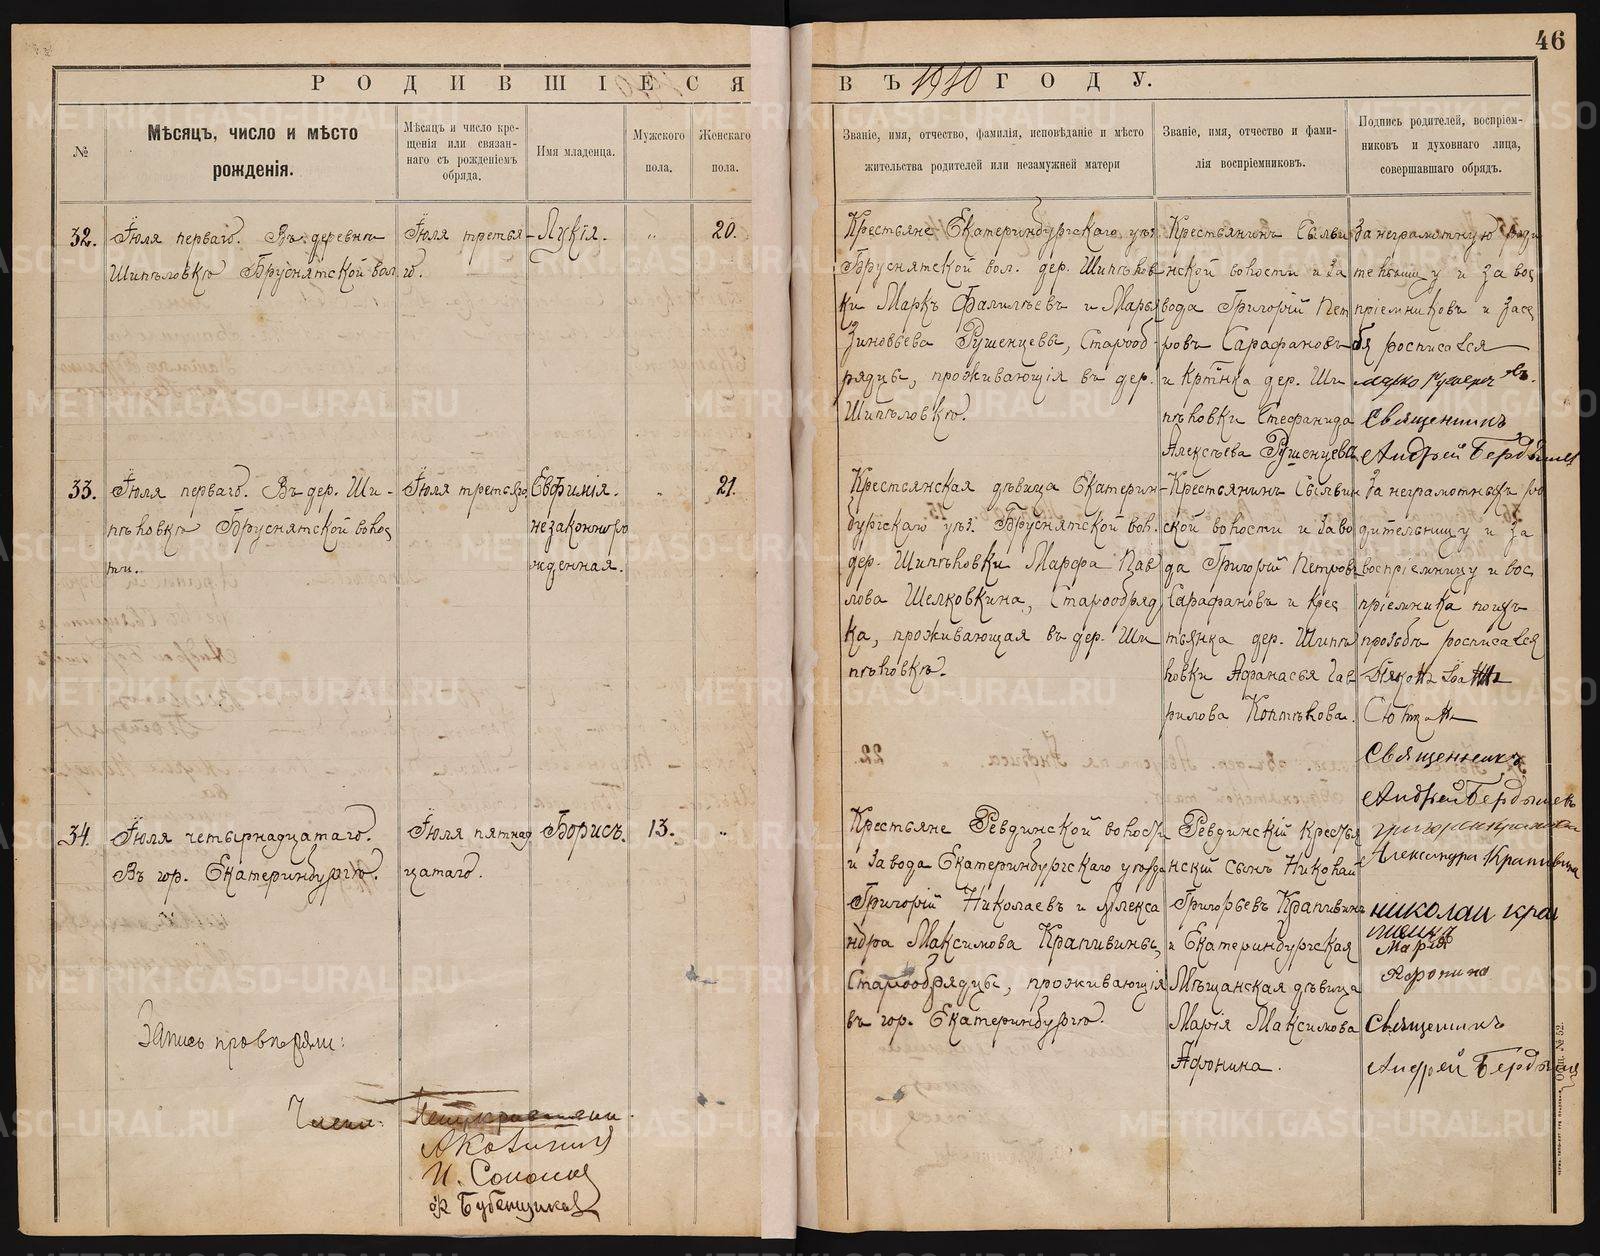 46
РОДИВШІЕСЯ ВЪ 1910 ГОДУ.
№
Мѣсяцъ, число и мѣсто
рожденія.
Мѣсяцъ и число кре-
щенія или связан-
наго съ рожденіемъ
обряда.
Имя младенца.
Мужского
пола.
Женскаго
пола.
Званіе, имя, отчество, фамилія, исповѣданіе и мѣсто
жительства родителей или незамужней матери
Званіе, имя, отчество и фами-
лія воспріемниковъ.
Подпись родителей, воспріем-
никовъ и духовнаго лица,
совершавшаго обрядъ.
32.
Іюля перваго. Въ деревни
Шипѣловкѣ Бруснятской вол.
Іюля третья-
го.
Лукія.
"
20.
Крестьяне Екатеринбургскаго уѣз.
Бруснятской вол. дер. Шипѣлов-
ки Маркъ Фалилѣевъ и Марья
Зиновьева Рушенцевы, Старооб-
рядцы, проживающія въ дер.
Шипѣловкѣ.
Крестьянинъ Сылви
нской волости и За
вода Григорій Пет
ровъ Сарафановъ
и Кртнка дер. Ши
пѣловки Стефанида
Алексѣева Рушенцева
За неграмотную роди
тельницу и за вос
пріемниковъ и за се
бя росписался
Марко Рушенцевъ.
Священникъ
Андрей Бердышев
33.
Іюля перваго. Въ дер. Ши-
пѣловкѣ Бруснятской волос
ти.
Іюля третьяго
Евфимія.
незаконноро
жденная.
"
21.
Крестьянская дѣвица Екатерин-
бургскаго уѣз. Бруснятской вол.
дер. Шипѣловки Марфа Пав
лова Шелковкина, Старообряд
ка, проживающая въ дер. Ши
пѣловкѣ.
Крестьянинъ Сылвин
ской волости и Заво
да Григорій Петровъ
Сарафановъ и Крес
тьянка дер. Шипѣ
ловки Афанасья Гав
рилова Коптѣлова.
За неграмотныхъ ро
дительницу и за
воспріемницу и вос
пріемника по ихъ
прозьбѣ росписался
Дяконъ
Священникъ
Андрей Бердышев
34.
Іюля четырнадцатаго.
Въ гор. Екатеринбургѣ.
Іюля пятнад
цатаго.
Борисъ.
13.
"
Крестьяне Ревдинской волости
и завода Екатеринбургскаго уѣзда
Григорій Николаевъ и Алекса
ндра Максимова Крапивины,
Старообрядцы, проживающія
въ гор. Екатеринбургѣ.
Ревдинскій Кресть
янскій сынъ Николай
Григорьевъ Крапивинъ
и Екатеринбургская
Мѣщанская дѣвица
Марія Максимова
Афонина.
Григорий Крапивин
Александра Крапивина
николаи крап
ивинъ
Мария
Афонина
Священникъ
Андрей Бердышев
Запись провѣряли:
Члены:
И. Соколов
Ф Бубенщиков